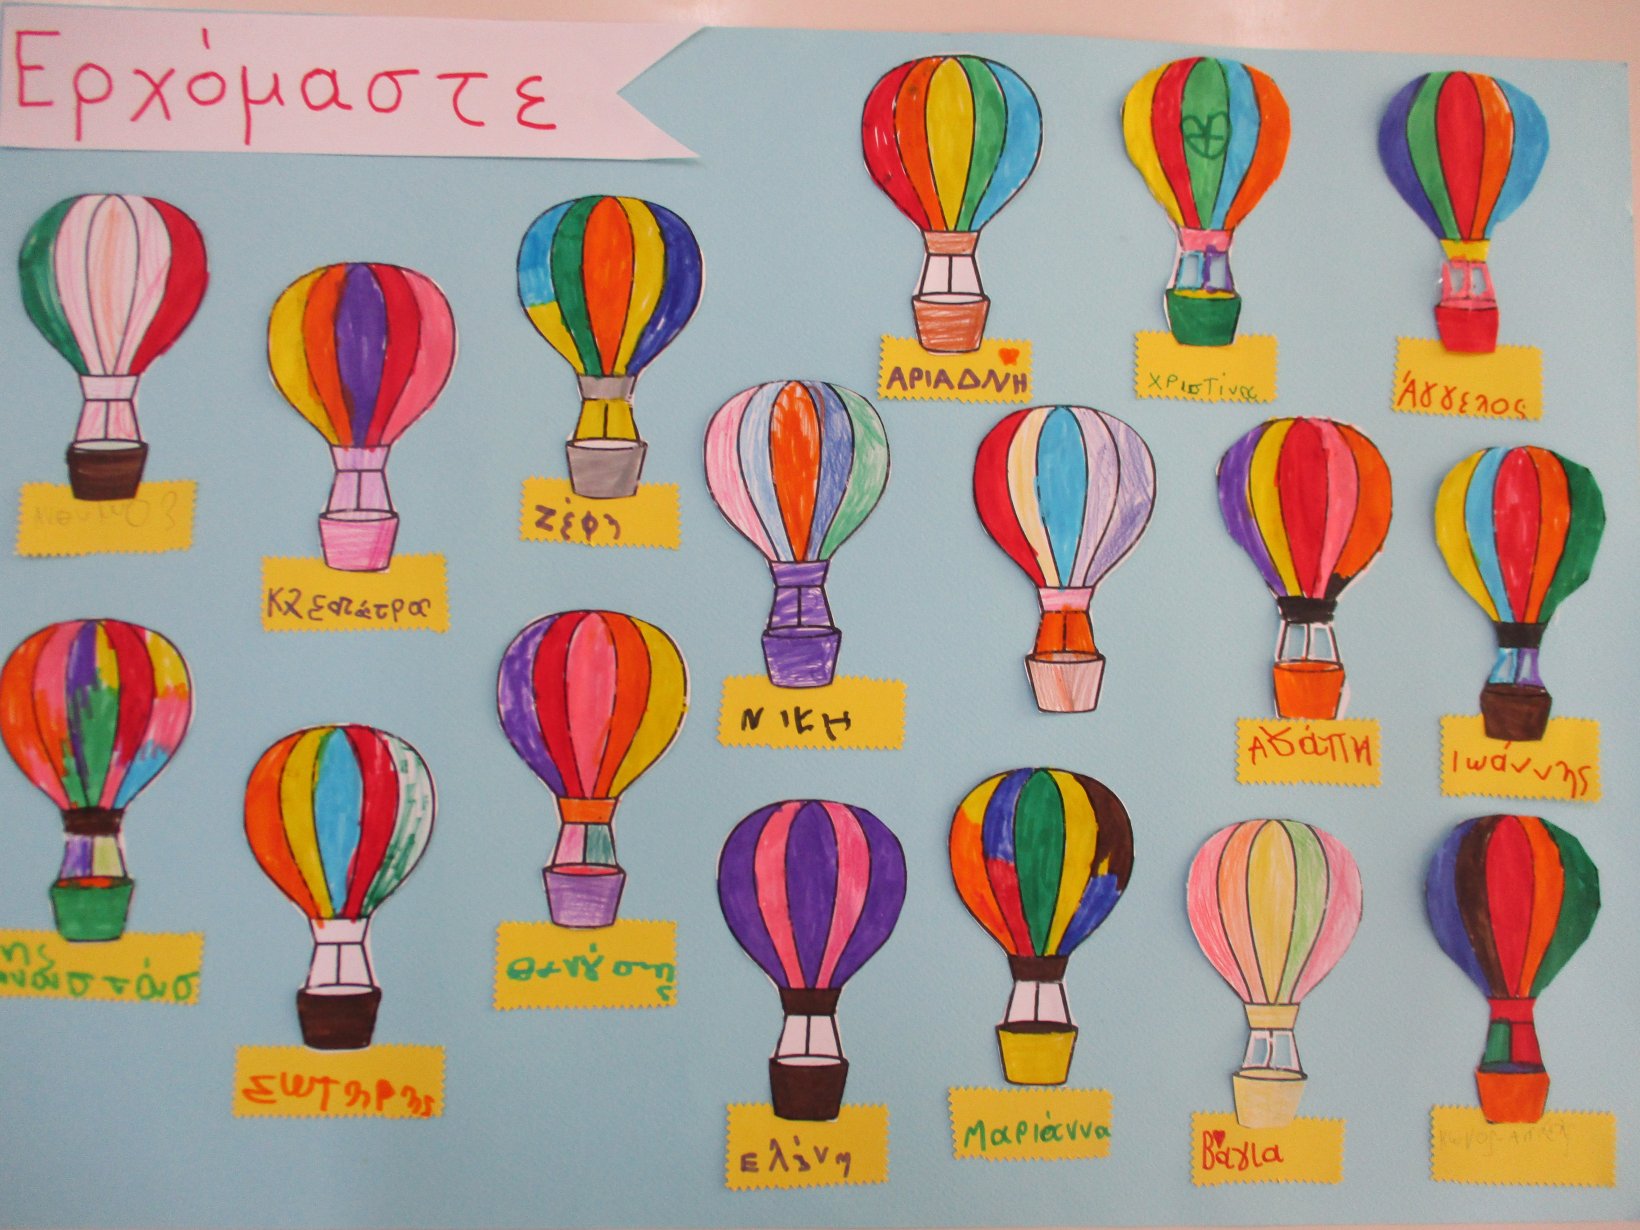 Ερχόμαστε
ΑΡΙΑΔΝΗ
χριστίνα
Άγγελος
Ζέφη
Κλεοπάτρα
ΝΙΚΗ
ΑγάπΗ
Ιωάννης
Θανάσης
Σωτηρης
Ελένη
Μαριάννα
Βάγια